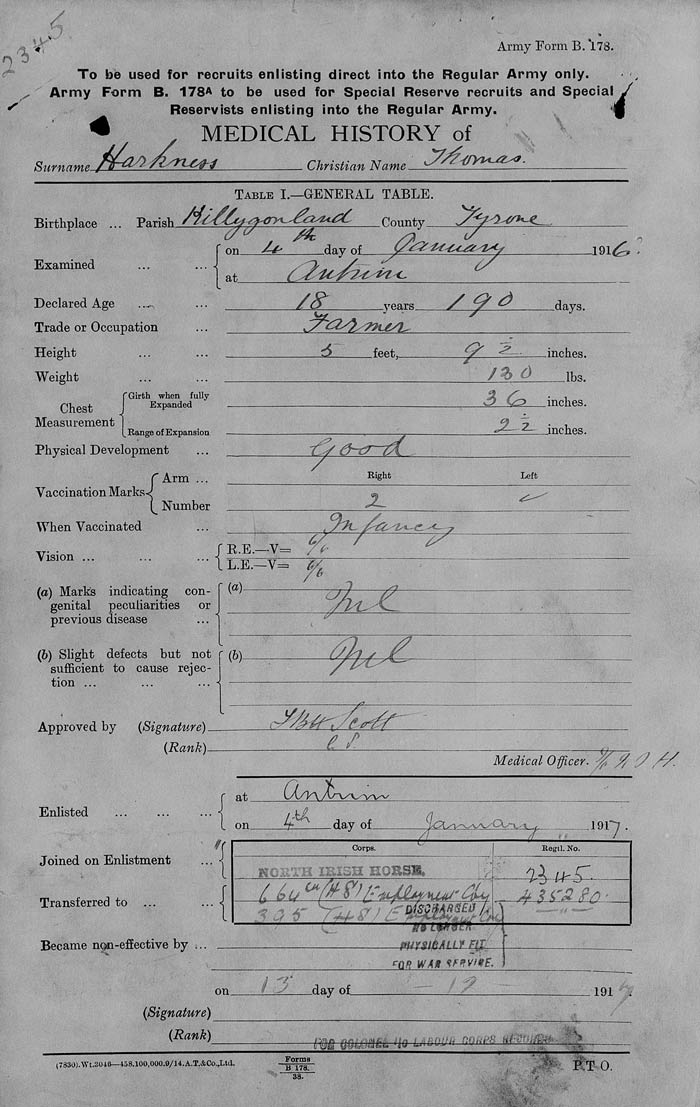 2345
Army Form B. 178.
To be used for recruits enlisting direct into the Regular Army only.
Army Form B. 178A to be used for Special Reserve recruits and Special
Reservists enlisting into the Regular Army.
MEDICAL HISTORY of
Surname Harkness Christian Name Thomas.
TABLE I.—GENERAL TABLE.
Birthplace ... Parish Killygonland County Tyrone
Examined ... ... { on 4th day of January 1916.
at Antrim
Declared Age ... ... 18 years 190 days.
Trade or Occupation ... Farmer
Height ... ... 5 feet, 9 1/2 inches.
Weight ... ... 130 lbs.
Chest Measurement { Girth when fully Expanded 36 inches.
Range of Expansion 2 1/2 inches.
Physical Development ... Good
Vaccination Marks { Arm ... Right Left
Number 2 ✓
When Vaccinated ... Infancy
Vision ... ... ... { R.E.—V= 6/6
L.E.—V= 6/6
(a) Marks indicating con-
genital peculiarities or
previous disease ...
(a) Nil
(b) Slight defects but not
sufficient to cause rejec-
tion ... ... ...
(b) Nil
Approved by (Signature) Scott
(Rank)
Medical Officer.
Enlisted ... ... ... { at Antrim
on 4th day of January 1917.
Corps. Regtl. No.
Joined on Enlistment ... NORTH IRISH HORSE. 2345.
Transferred to ... ... 664 (H S) Employment Coy 435280.
395 (H S) Employment Coy
Became non-effective by ... DISCHARGED
NO LONGER
PHYSICALLY FIT
FOR WAR SERVICE.
on 13 day of - 12 - 1917
(Signature)
(Rank) FOR COLONEL I/c LABOUR CORPS RECORDS
(7830).Wt.2046—458.100,000.9/14.A.T.&Co.,Ltd. Forms B 178. 38. P.T.O.